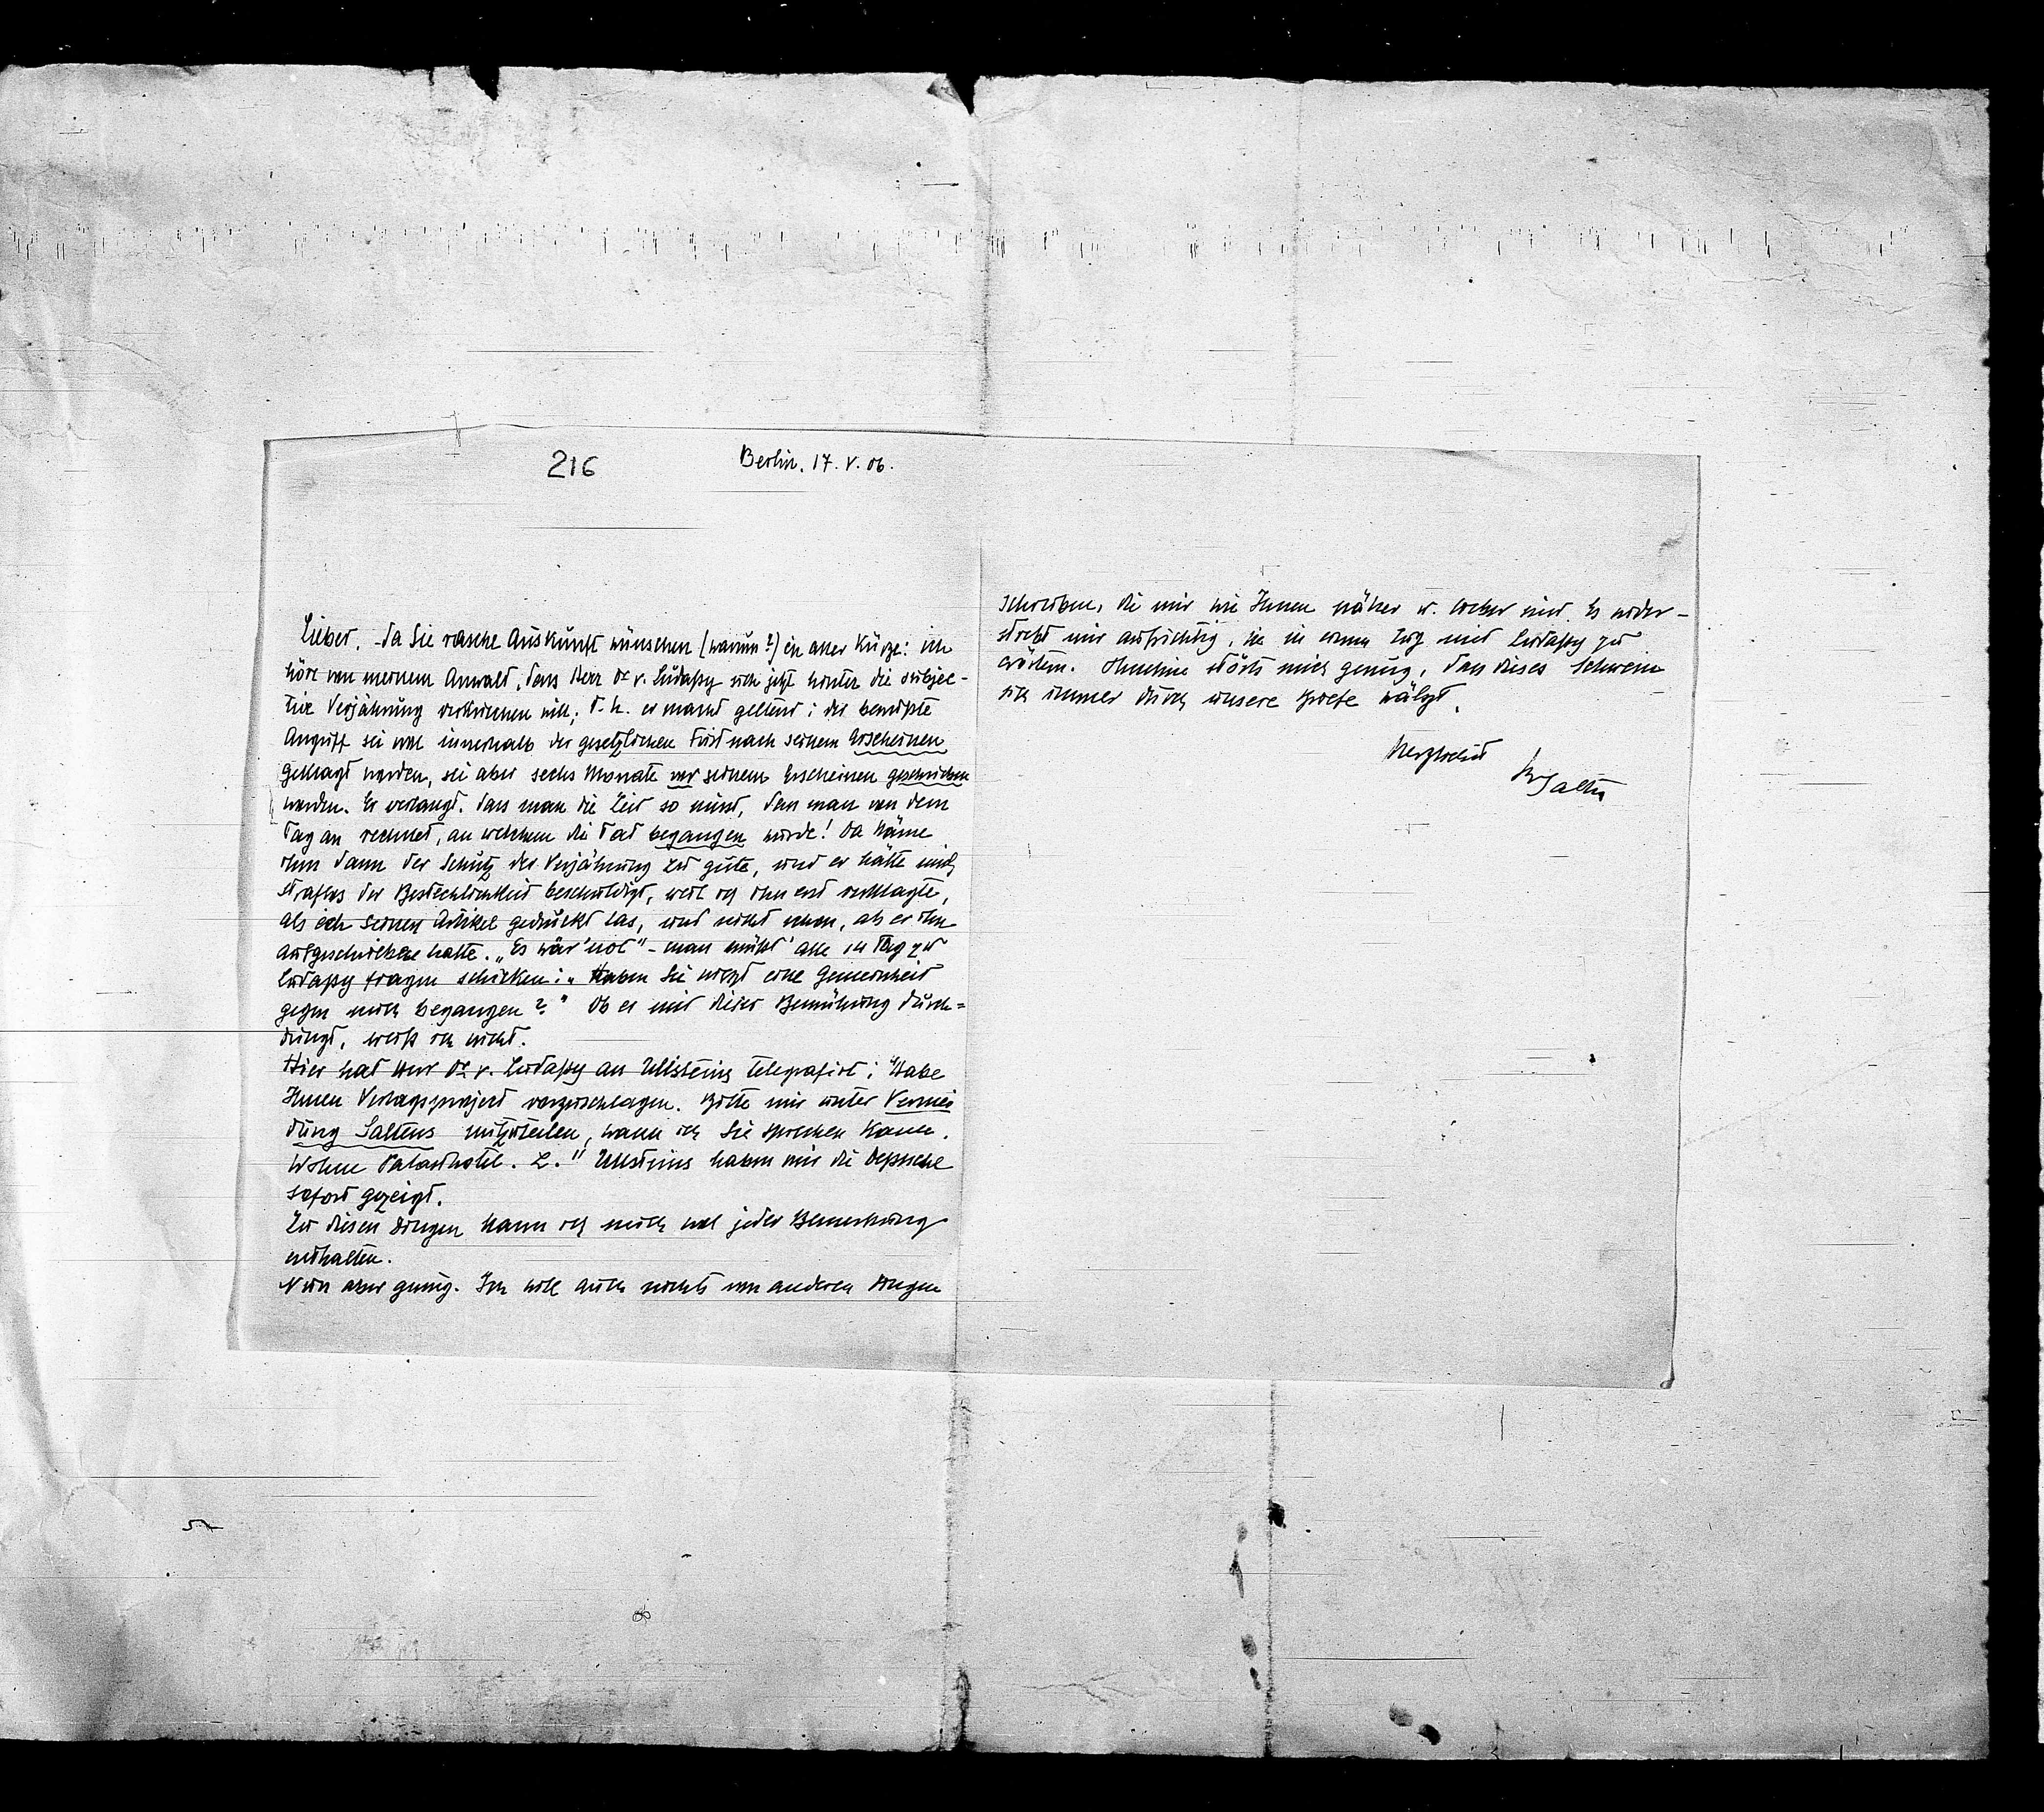 216
Berlin, 17. V. 06.
Lieber, da Sie rasche Auskunft wünschen (warum?) in aller Kürze: ich
höre von meinem Anwalt, dass Herr Dr v. Ludaßy sich jetzt hinter die subjec-
tive Verjährung verkriechen will; d. h. er macht geltend: der bewußte
Angriff sei wol innerhalb der gesetzlichen Frist nach seinem Erscheinen
geklagt worden, sei aber sechs Monate vor seinem Erscheinen geschrieben
worden. Er verlangt, dass man die Zeit so nimt, dass man von dem
Tag an rechnet, an welchem die Tat begangen wurde! Da käme
ihm dann der Schutz der Verjährung zu gute, und er hätte mich
straflos der Bestechlichkeit beschuldigt, weil ich ihn erst verklagte,
als ich seinen Artikel gedruckt las, und nicht schon, als er ihn
aufgeschrieben hatte. „Es wär' not" – man müßt' alle 14 Tag zu
Ludaßy fragen schicken: „Haben Sie nicht eine Gemeinheit
gegen mich begangen?" Ob er mit dieser Bemühung durch=
dringt, weiß ich nicht.
Hier hat Herr Dr v. Ludaßy an Ullsteins telegrafirt: „Habe
Ihnen Verlagsproject vorzuschlagen. Bitte mir unter Vermei
dung Saltens mitzuteilen, wann ich Sie sprechen kann.
Wohne Palasthotel. L." Ullsteins haben mir die Depesche
sofort gezeigt.
Zu diesen Dingen kann ich mich wol jeder Bemerkung
enthalten.
Nun aber genug. Ich will auch nichts von anderen Dingen
schreiben, die mir wie Ihnen näher u. lieber sind. Es wider-
strebt mir aufrichtig, sie in einem Zug mit Ludaßy zu
erörtern. Ohnehin störts mich genug, dass dieses Schwein
sich immer durch unsere Briefe wälzt.
Herzlichst
Salten